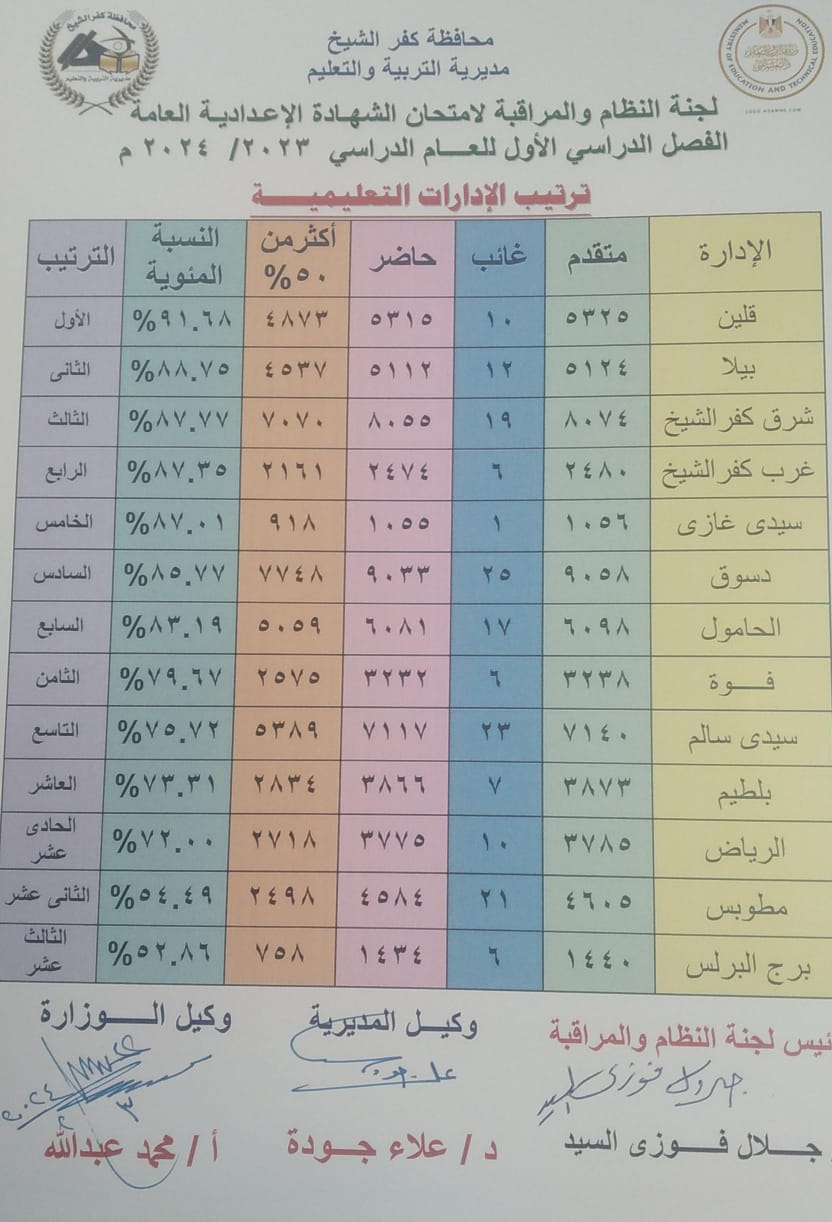 محافظة كفر الشيخ
مديرية التربية والتعليم
محافظة كفر الشيخ
مديرية التربية والتعليم
MINISTRY OF EDUCATION AND TECHNICAL EDUCATION
LOGO.ADAWAC.COM
لجنة النظام والمراقبة لامتحان الشهادة الإعدادية العامة
الفصل الدراسي الأول للعام الدراسي ٢٠٢٣/ ٢٠٢٤ م
ترتيب الإدارات التعليمية
الإدارة متقدم غائب حاضر أكثر من ٥٠% النسبة المئوية الترتيب
قلين ٥٣٢٥ ١٠ ٥٣١٥ ٤٨٧٣ ٩١.٦٨% الأول
بيلا ٥١٢٤ ١٢ ٥١١٢ ٤٥٣٧ ٨٨.٧٥% الثانى
شرق كفر الشيخ ٨٠٧٤ ١٩ ٨٠٥٥ ٧٠٧٠ ٨٧.٧٧% الثالث
غرب كفر الشيخ ٢٤٨٠ ٦ ٢٤٧٤ ٢١٦١ ٨٧.٣٥% الرابع
سيدى غازى ١٠٥٦ ١ ١٠٥٥ ٩١٨ ٨٧.٠١% الخامس
دسوق ٩٠٥٨ ٢٥ ٩٠٣٣ ٧٧٤٨ ٨٥.٧٧% السادس
الحامول ٦٠٩٨ ١٧ ٦٠٨١ ٥٠٥٩ ٨٣.١٩% السابع
فوة ٣٢٣٨ ٦ ٣٢٣٢ ٢٥٧٥ ٧٩.٦٧% الثامن
سيدى سالم ٧١٤٠ ٢٣ ٧١١٧ ٥٣٨٩ ٧٥.٧٢% التاسع
بلطيم ٣٨٧٣ ٧ ٣٨٦٦ ٢٨٣٤ ٧٣.٣١% العاشر
الرياض ٣٧٨٥ ١٠ ٣٧٧٥ ٢٧١٨ ٧٢.٠٠% الحادى عشر
مطوبس ٤٦٠٥ ٢١ ٤٥٨٤ ٢٤٩٨ ٥٤.٤٩% الثانى عشر
برج البرلس ١٤٤٠ ٦ ١٤٣٤ ٧٥٨ ٥٢.٨٦% الثالث عشر
ئيس لجنة النظام والمراقبة
وكيل المديرية
وكيل الوزارة
جلال فوزى السيد
د / علاء جودة
أ / محمد عبدالله